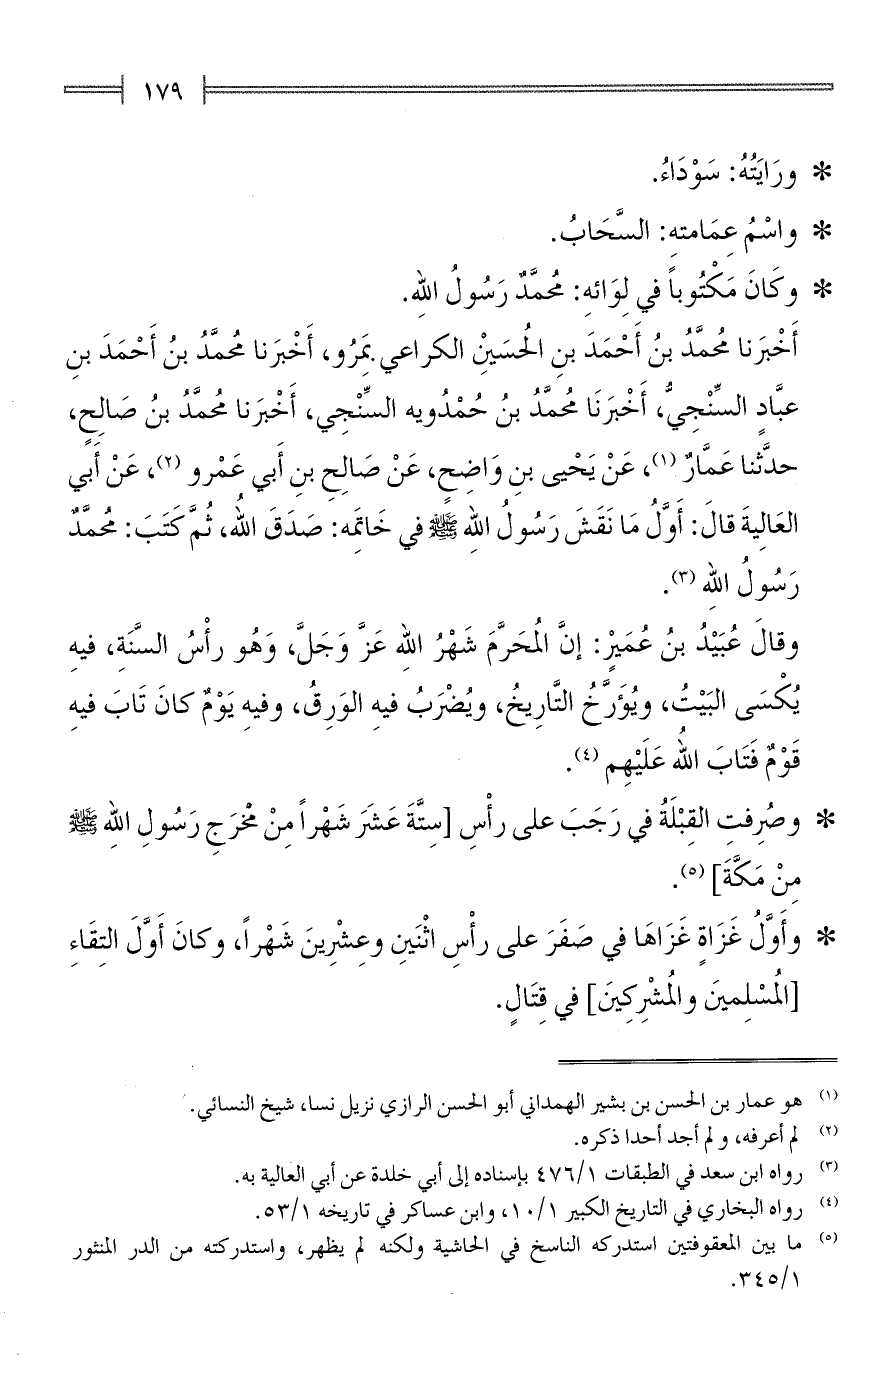 ١٧٩
* ورَايَتُهُ: سَوْدَاءُ.
* واسْمُ عِمَامتِه: السَّحَابُ.
* وكَانَ مَكْتُوباً في لِوَائهِ: مُحمَّدٌ رَسُولُ اللهِ.
أَخْبَرَنا مُحمَّدُ بنُ أَحْمَدَ بنِ الحُسَيْنِ الكراعي بمَرُو، أَخْبَرَنا مُحمَّدُ بنُ أَحْمَدَ بنِ
عبَّادٍ السِّنْجِيُّ، أَخْبَرَنَا مُحمَّدُ بنُ حُمْدُويه السِّنْجِي، أَخْبَرَنا مُحمَّدُ بنُ صَالِحٍ،
حدَّثنا عَمَّارٌ (١)، عَنْ يَحْيى بنِ وَاضِحٍ، عَنْ صَالِحِ بنِ أَبي عَمْرو (٢)، عَنْ أَبي
العَالِيةَ قالَ: أَوَّلُ مَا نَقَشَ رَسُولُ اللهِ ﷺ في خَاتَمِه: صَدَقَ اللهُ، ثُمَّ كَتَبَ: مُحمَّدٌ
رَسُولُ اللهِ (٣).
وقالَ عُبَيْدُ بنُ عُمَيْرٍ: إنَّ المُحَرَّمَ شَهْرُ اللهِ عَزَّ وَجَلَّ، وَهُو رأْسُ السَّنَةِ، فيهِ
يُكْسَى البَيْتُ، ويُؤَرَّخُ التَّارِيخُ، ويُضْرَبُ فيهِ الوَرِقُ، وفيهِ يَوْمٌ كانَ تَابَ فيهِ
قَوْمٌ فَتَابَ اللهُ عَلَيْهِم (٤).
* وصُرِفتِ القِبْلَةُ في رَجَبَ على رأْسِ [سِتَّةَ عَشَرَ شَهْراً مِنْ مَخْرَجِ رَسُولِ اللهِ ﷺ
مِنْ مَكَّةَ] (٥).
* وأَوَّلُ غَزَاةٍ غَزَاهَا في صَفَرَ على رأْسِ اثْنَينِ وعِشْرِينَ شَهْراً، وكانَ أَوَّلَ التِقَاءِ
[المُسْلِمينَ والمُشْرِكِينَ] في قِتَالٍ.
(١) هو عمار بن الحسن بن بشير الهمداني أبو الحسن الرازي نزيل نسا، شيخ النسائي.
(٢) لم أعرفه، و لم أجد أحدا ذكره.
(٣) رواه ابن سعد في الطبقات ٤٧٦/١ بإسناده إلى أبي خلدة عن أبي العالية به.
(٤) رواه البخاري في التاريخ الكبير ١٠/١، وابن عساكر في تاريخه ٥٣/١.
(٥) ما بين المعقوفتين استدركه الناسخ في الحاشية ولكنه لم يظهر، واستدركته من الدر المنثور
٣٤٥/١.